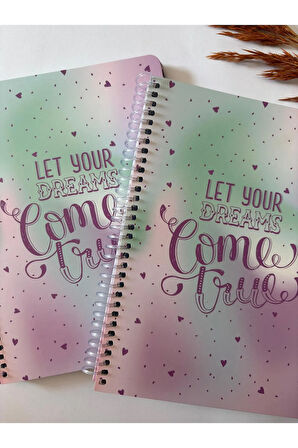 LET YOUR
DREAMS
Come
true
LET YOUR
DREAMS
Come
true